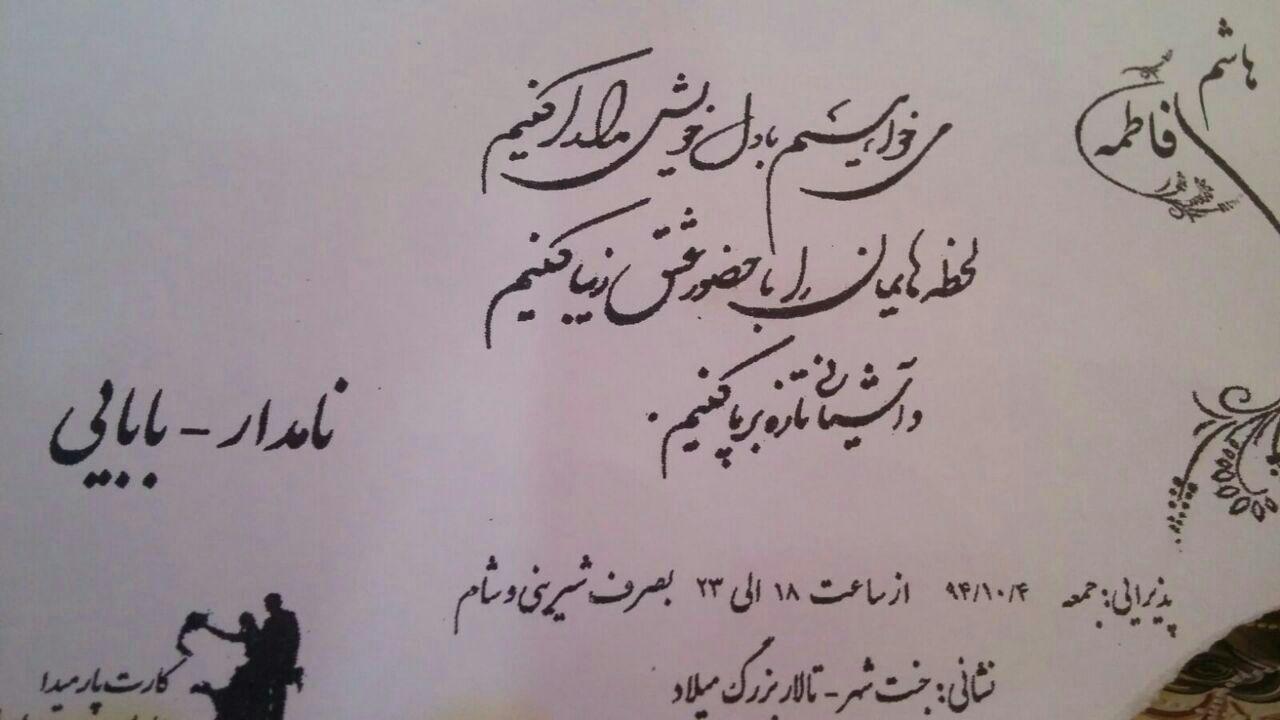 هاشم
فاطمه
می خواهیم با دل خویش مدارا کنیم
لحظه هایمان را با حضور عشق زیبا کنیم
و آشیانی تازه برپا کنیم .
نامدار - بابایی
پذیرایی: جمعه ۹۴/۱۰/۴ از ساعت ۱۸ الی ۲۳ بصرف شیرینی و شام
نشانی: جنت شهر - تالار بزرگ میلاد
کارت پارمیدا